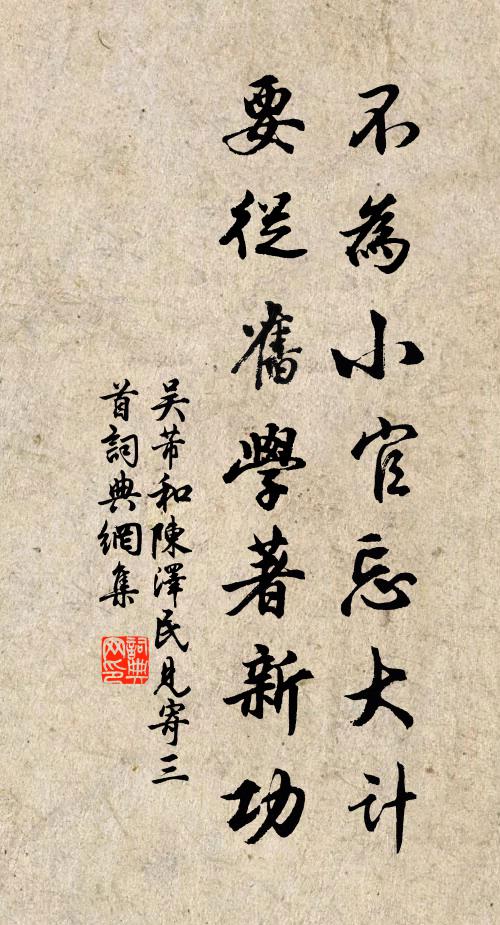 不為小官忘大计
要從舊學著新功
吴芾和陳澤民見寄三
首詞典網集
詞典
网印